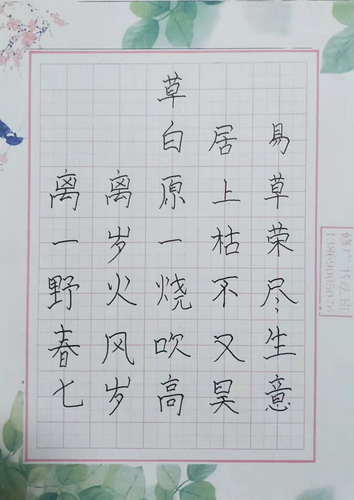 草
白居易
离离原上草
一岁一枯荣
野火烧不尽
春风吹又生
七岁高昊意